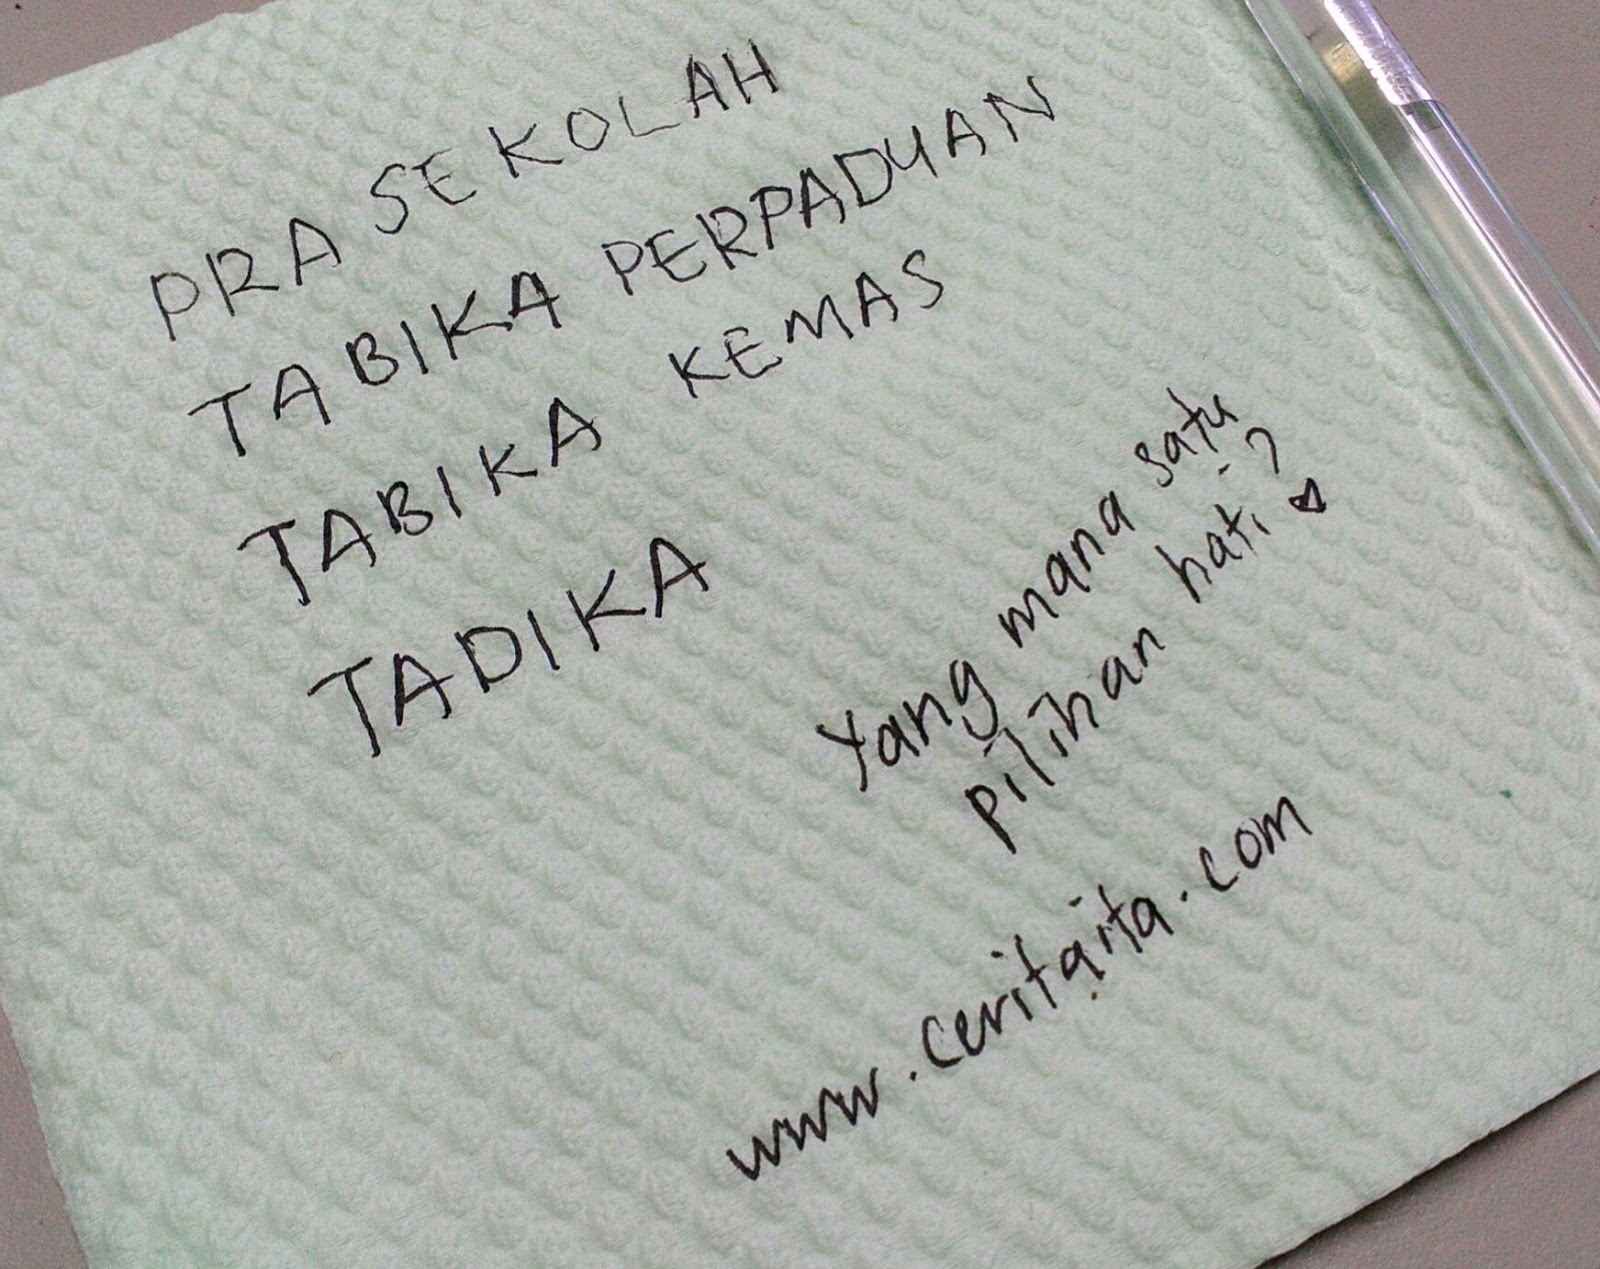 PRA SEKOLAH
TABIKA PERPADUAN
TABIKA KEMAS
TADIKA
Yang mana satu
pilihan hati?
www.ceritaita.com